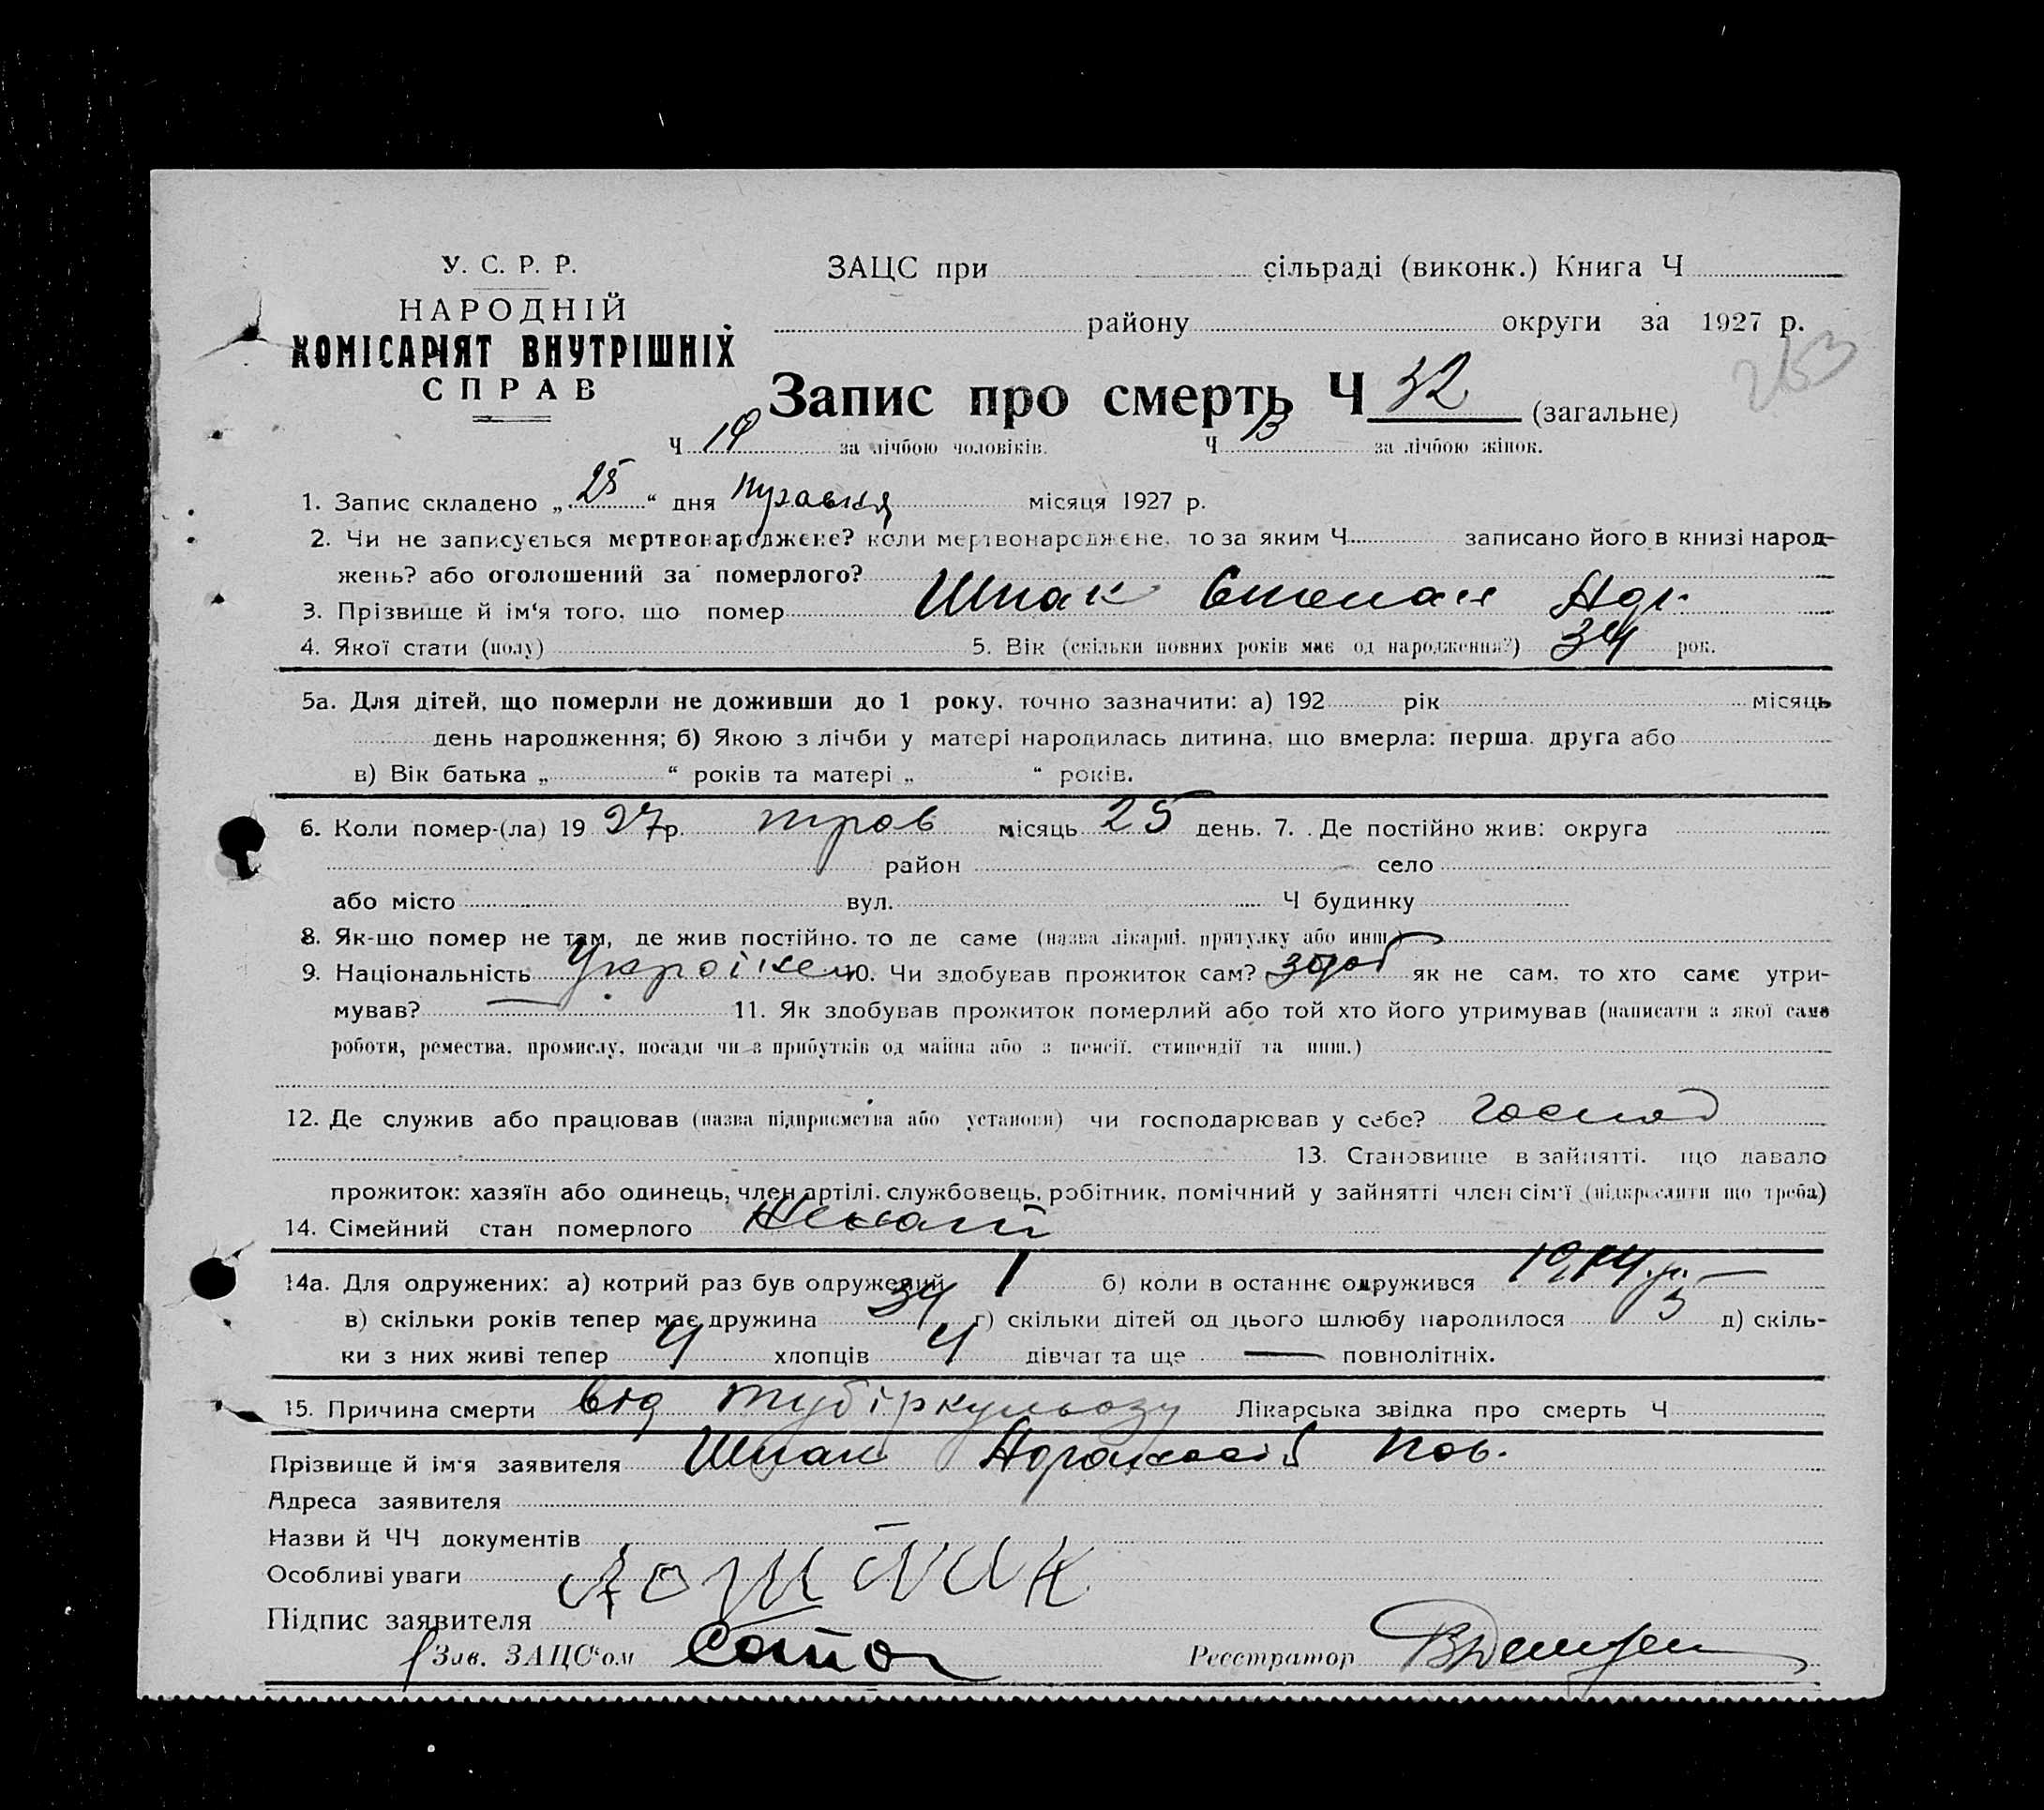 У. С. Р. Р.
НАРОДНІЙ
КОМІСАРІЯТ ВНУТРІШНІХ
СПРАВ
ЗАЦС при сільраді (виконк.) Книга Ч
району округи за 1927 р.
Запис про смерть Ч 32 (загальне)
Ч 19 за лічбою чоловіків. Ч 13 за лічбою жінок.
1. Запис складено „25“ дня травня місяця 1927 р.
2. Чи не записується мертвонароджене? коли мертвонароджене, то за яким Ч записано його в книзі народ-
жень? або оголошений за померлого?
3. Прізвище й ім‘я того, що помер Шпак Степан
4. Якої стати (полу) 5. Вік (скільки повних років має од народження?) 34 рок.
5а. Для дітей, що померли не доживши до 1 року, точно зазначити: а) 192 рік місяць
день народження; б) Якою з лічби у матері народилась дитина, що вмерла: перша, друга або
в) Вік батька „ “ років та матері „ “ років.
6. Коли помер-(ла) 1927р. трав місяць 25 день. 7. Де постійно жив: округа
район село
або місто вул. Ч будинку
8. Як-що помер не там, де жив постійно, то де саме (назва лікарні, притулку або инш.)
9. Національність 10. Чи здобував прожиток сам? як не сам, то хто саме утри-
мував? — 11. Як здобував прожиток померлий або той хто його утримував (написати з якої саме
роботи, ремества, промислу, посади чи з прибутків од майна або з пенсії, стипендії та инш.)
12. Де служив або працював (назва підприємства або установи) чи господарював у себе? господ
13. Становище в зайнятті, що давало
прожиток: хазяїн або одинець, член артілі, службовець, робітник, помічний у зайнятті член сім‘ї (підкреслити що треба)
14. Сімейний стан померлого Женатий
14а. Для одружених: а) котрий раз був одружений 1 б) коли в останнє одружився 1914 р. —
в) скільки років тепер має дружина 34 г) скільки дітей од цього шлюбу народилося д) скіль-
ки з них живі тепер хлопців дівчат та ще — повнолітніх.
15. Причина смерти від тубіркульозу Лікарська звідка про смерть Ч
Прізвище й ім‘я заявителя Шпак
Адреса заявителя
Назви й ЧЧ документів
Особливі уваги
Підпис заявителя
Зав. ЗАЦС‘ом
Реєстратор